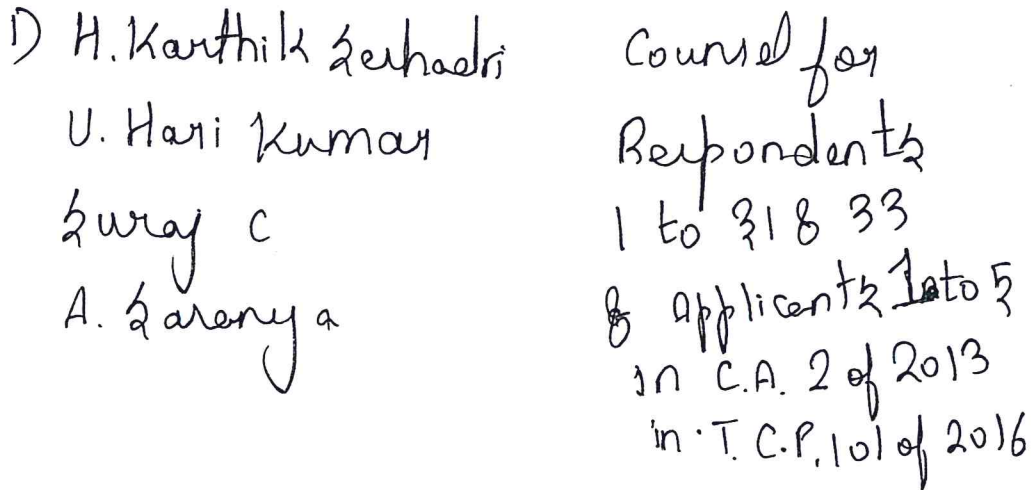 1) H. Karthik Seshadri
U. Hari Kumar
Suraj C
A. Saranya
Counsel for
Respondents
1 to 31 & 33
& applicants 1 to 5
in C.A. 2 of 2013
in T.C.P. 101 of 2016